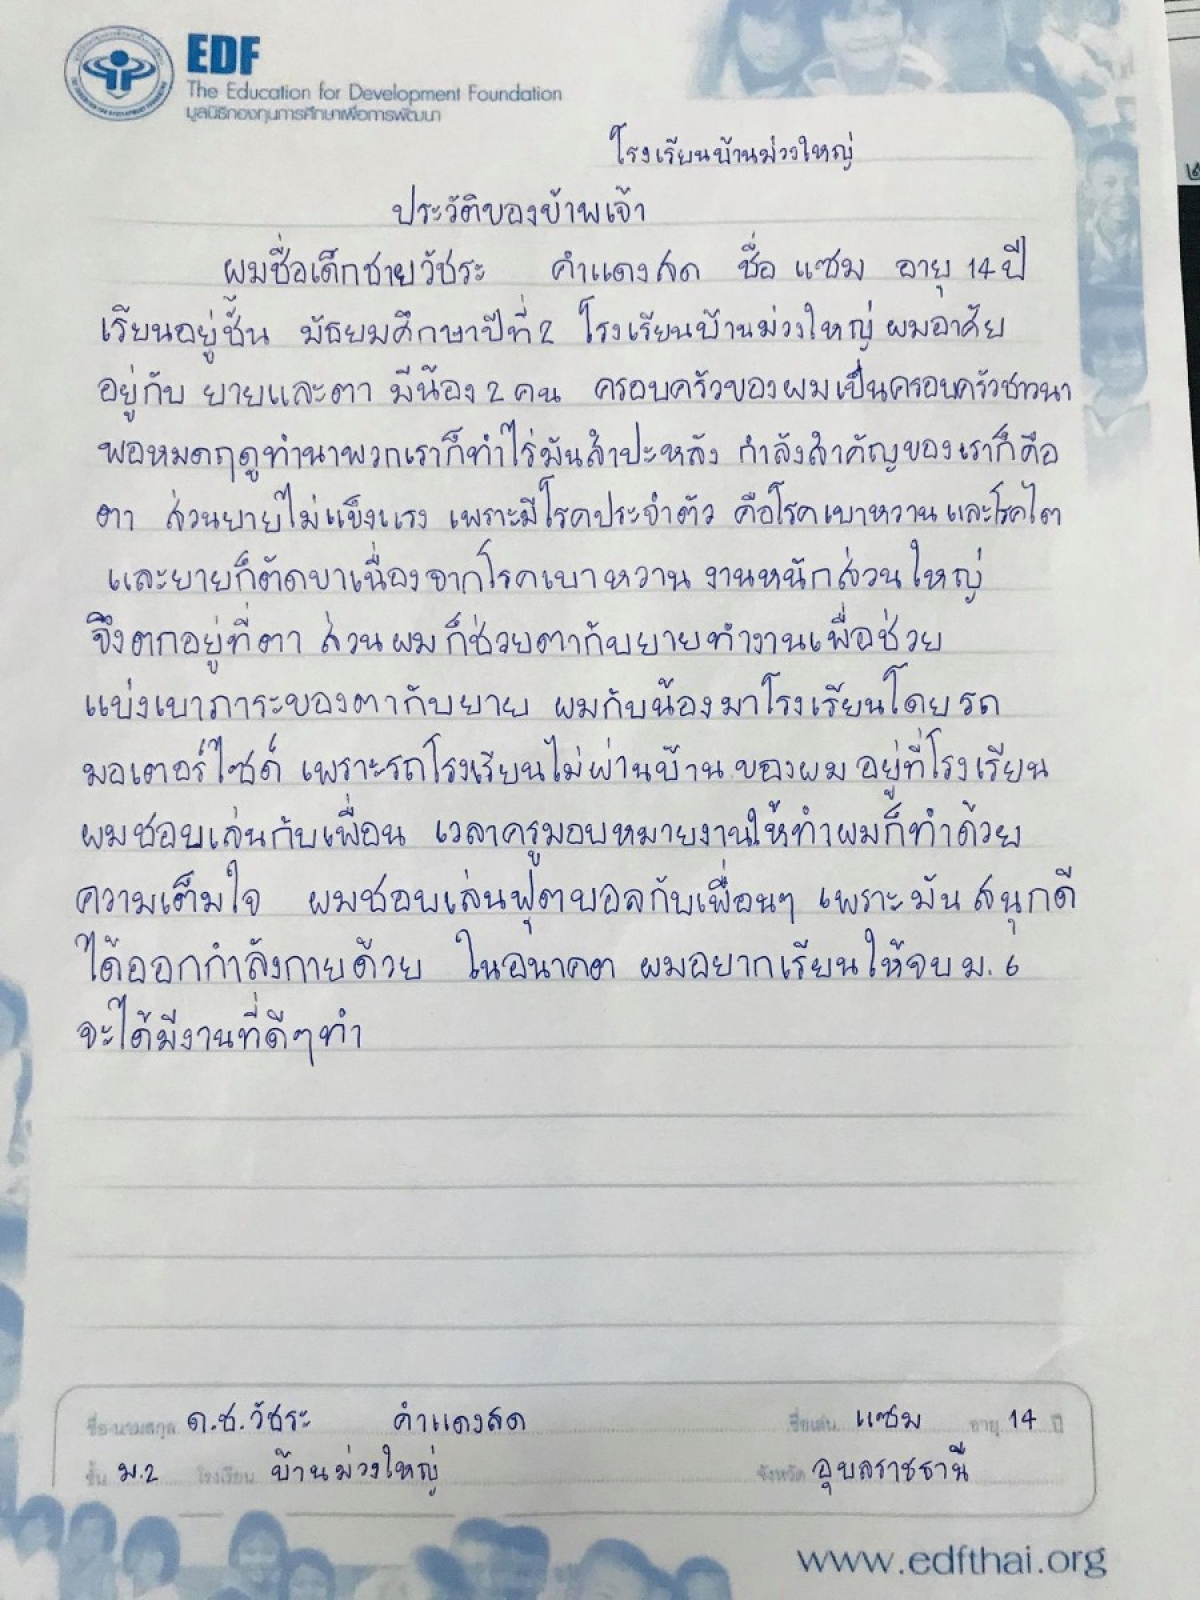 EDF
The Education for Development Foundation
มูลนิธิกองทุนการศึกษาเพื่อการพัฒนา
โรงเรียนบ้านม่วงใหญ่
ประวัติของข้าพเจ้า
ผมชื่อเด็กชายวัชระ คำแดงสด ชื่อ แซม อายุ 14 ปี
เรียนอยู่ชั้น มัธยมศึกษาปีที่ 2 โรงเรียนบ้านม่วงใหญ่ ผมอาศัย
อยู่กับ ยายและตา มีน้อง 2 คน ครอบครัวของผมเป็นครอบครัวชาวนา
พอหมดฤดูทำนาพวกเราก็ทำไร่มันสำปะหลัง กำลังสำคัญของเราก็คือ
ตา ส่วนยายไม่แข็งแรง เพราะมีโรคประจำตัว คือโรคเบาหวานและโรคไต
และยายก็ตัดขาเนื่องจากโรคเบาหวาน งานหนักส่วนใหญ่
จึงตกอยู่ที่ตา ส่วนผมก็ช่วยตากับยายทำงานเพื่อช่วย
แบ่งเบาภาระของตากับยาย ผมกับน้องมาโรงเรียนโดยรถ
มอเตอร์ไซด์ เพราะรถโรงเรียนไม่ผ่านบ้านของผม อยู่ที่โรงเรียน
ผมชอบเล่นกับเพื่อน เวลาครูมอบหมายงานให้ทำผมก็ทำด้วย
ความเต็มใจ ผมชอบเล่นฟุตบอลกับเพื่อนๆ เพราะมันสนุกดี
ได้ออกกำลังกายด้วย ในอนาคต ผมอยากเรียนให้จบ ม. 6
จะได้มีงานที่ดีๆทำ
ชื่อ-นามสกุล ด.ช.วัชระ คำแดงสด ชื่อเล่น แซม อายุ 14 ปี
ชั้น ม.2 โรงเรียน บ้านม่วงใหญ่ จังหวัด อุบลราชธานี
www.edfthai.org